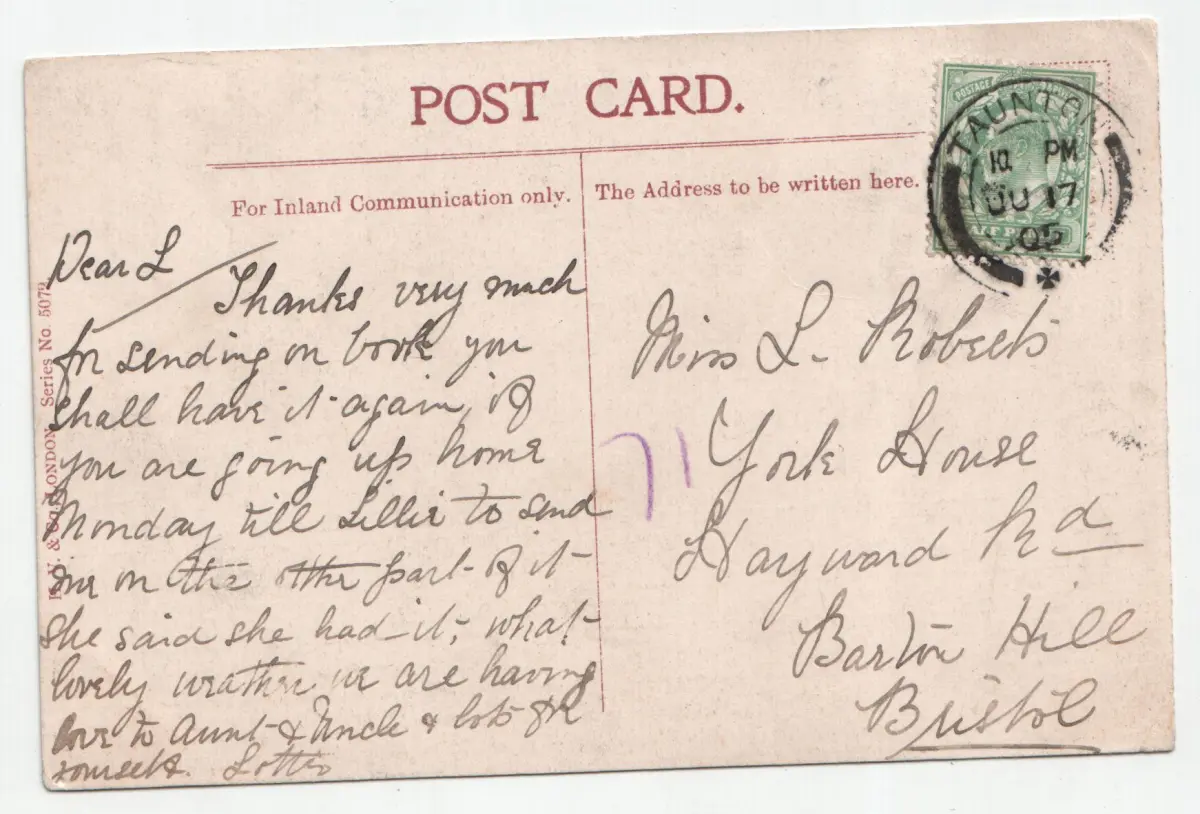 POST CARD.
For Inland Communication only.
The Address to be written here.
TAUNTON
PM
JU 17
05
Series No. 5072
& Co. LONDON
Dear L
Thanks very much
for sending on book you
shall have it again, if
you are going up home
Monday till Lillie to send
me on the other part of it
she said she had it, what
lovely weather we are having
love to Aunt & Uncle & lots for
yourself. Lottie
Miss L. Roberts
York House
Hayward Rd
Barton Hill
Bristol
71